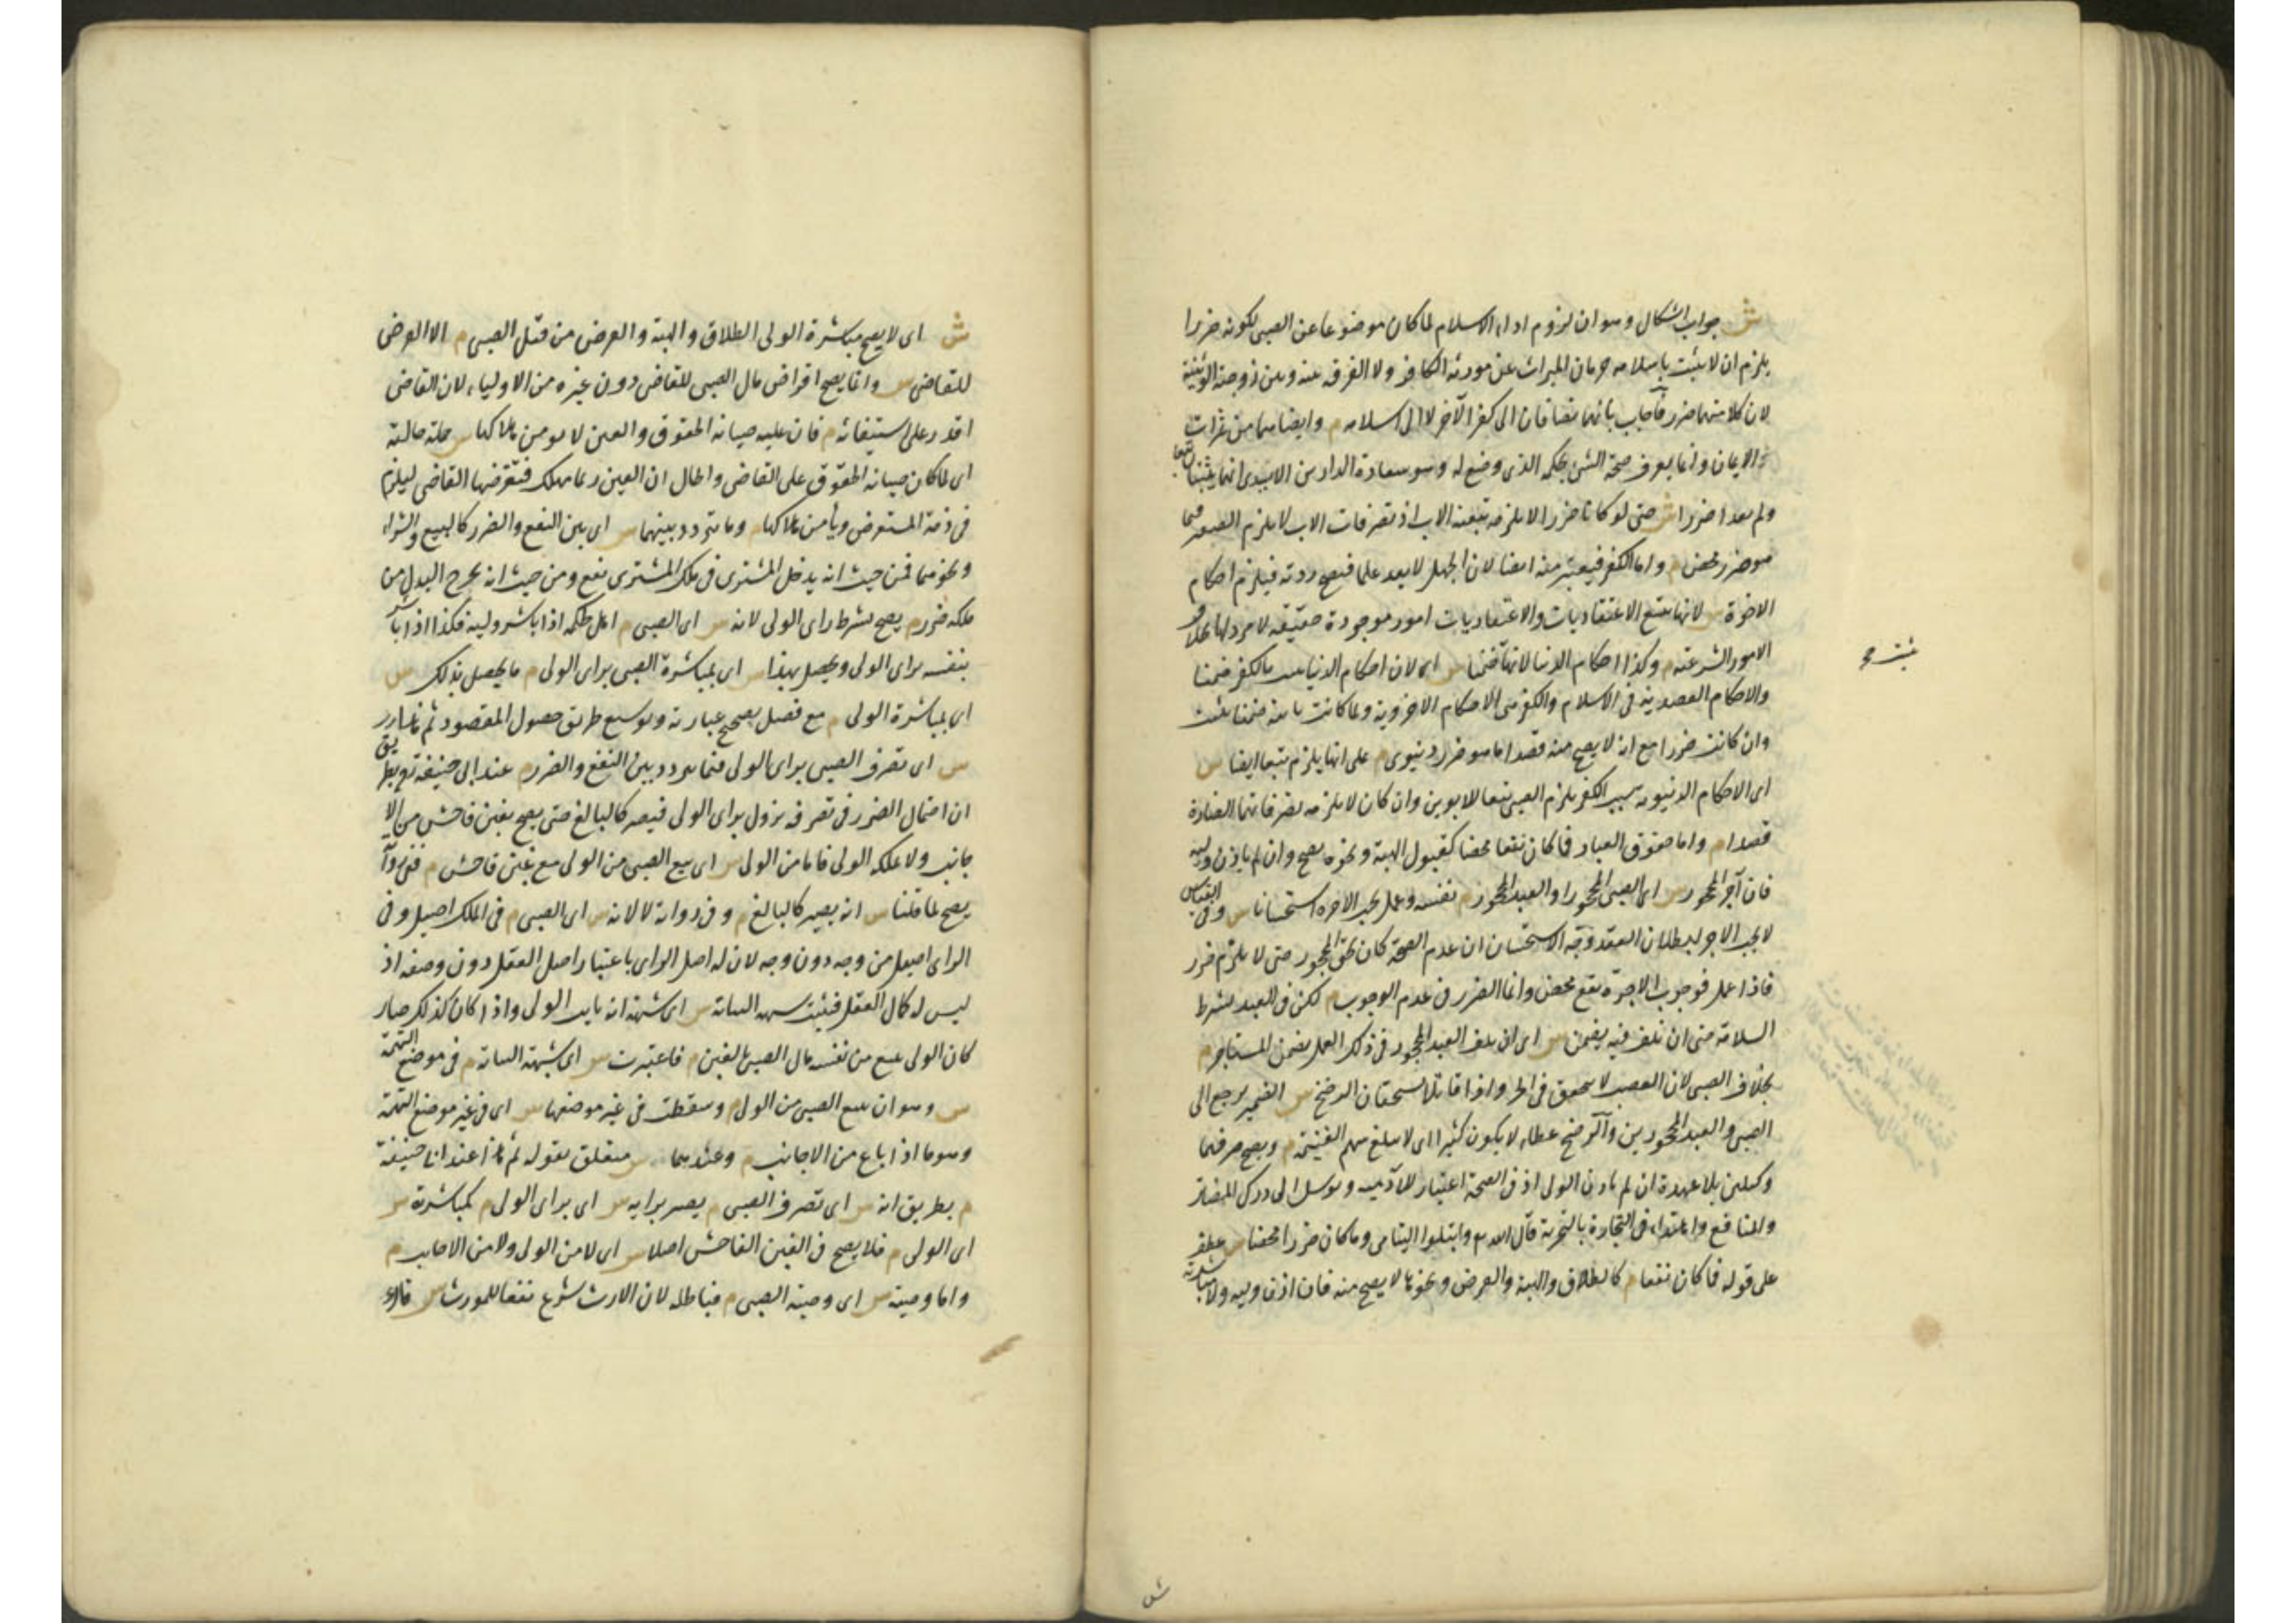 ش جواب اشكال وهو ان لزوم اداء الاسلام لما كان موضوعا عن الصبى لكونه ضررا
يلزم ان لا يثبت باسلامه حرمان الميراث عن مورثه الكافر ولا الفرقة عنه وبين زوجته الوثنية
لان كلا منهما ضرر فاجاب بانهما تضافان الى كفر الآخر لا الى اسلامه م وايضا هما من ثمرات
الايمان وانما يعرف صحة الشئ بحكمه الذى وضع له وهو سعادة الدارين الا يرى انهما يثبتان تبعا
ولم يعدا ضررا ش حتى لو كانا ضررا لا يلزمه تبعية الاب اذ تصرفات الاب لا يلزم الصغير فيما
هو ضرر محض م واما الكفر فيعتبر منه ايضا لان الجهل لا يعد علما فتصح ردته فيلزم احكام
الاخرة ش لانها يتبع الاعتقاديات والاعتقاديات امور موجودة حقيقة لا مرد لها بخلاف
الامور الشرعية م وكذا احكام الدنيا لانها ضمنا ش اى لان احكام الدنيا يثبت بالكفر ضمنا
والاحكام القصدية فى الاسلام والكفر هى الاحكام الاخروية ولما كانت ثابتة ضمنا يثبت
وان كانت ضررا مع انه لا يصح منه قصدا ما هو ضرر دنيوى م على انها يلزم تبعا ايضا ش
اى الاحكام الدنيوية بسبب الكفر يلزم الصبى تبعا للابوين وان كان لا يلزمه تصرفاتهما الضارة
قصدا م واما حقوق العباد فما كان نفعا محضا كقبول الهبة ونحوه يصح وان لم ياذن وليه
فان آجر المحجور ش اى الصبى المحجور او العبد المحجور م نفسه وعمل يجب الاجرة استحسانا ش وفى القياس
لا يجب الاجر لبطلان العقد وجه الاستحسان ان عدم الصحة كان لحق المحجور حتى لا يلزم ضرر
فاذا عمل فوجوب الاجرة نفع محض وانما الضرر فى عدم الوجوب م لكن فى العبد يشترط
السلامة حتى ان تلف فيه يضمن ش اى ان تلف العبد المحجور فى ذلك العمل يضمن المستاجر م
بخلاف الصبى لان الغصب لا يتحقق فى الحر واذا قاتلا يستحقان الرضخ ش الضمير يرجع الى
الصبى والعبد المحجورين والرضخ عطاء لا يكون كثيرا اى لا يبلغ سهم الغنيمة م ويصح تصرفهما
وكيلين بلا عهدة ان لم ياذن الولى اذ فى الصحة اعتبار للآدمية وتوسل الى درك المضار
والمنافع واهتداء فى التجارة بالتجربة قال الله تع وابتلوا اليتامى وما كان ضررا محضا ش عطف
على قوله فما كان نفعا م كالطلاق والهبة والقرض ونحوها لا يصح منه فان اذن وليه ولا مباشرته
ش اى لا يصح مباشرة الولى الطلاق والهبة والقرض من قبل الصبى م الا القرض
للقاضى ش وانما يصح اقراض مال الصبى للقاضى دون غيره من الاولياء لان القاضى
اقدر على استيفائه م فان عليه صيانة الحقوق والعين لا يؤمن هلاكها ش جملة حالية
اى لما كان صيانة الحقوق على القاضى والحال ان العين ربما تهلك فتقرضها القاضى ليلزم
فى ذمة المستقرض ويأمن هلاكها م وما تردد بينهما ش اى بين النفع والضرر كالبيع والشراء
ونحوهما فمن حيث انه يدخل المشترى فى ملك المشترى نفع ومن حيث انه يخرج البدل من
ملكه ضرر م يصح بشرط راى الولى لانه ش اى الصبى م اهل لحكمه اذا باشر وليه فكذا اذا باشر
بنفسه براى الولى ويحصل بهذا ش اى بمباشرة الصبى براى الولى م ما يحصل بذلك ش
اى بمباشرة الولى م مع فضل تصحيح عبارته وتوسيع طريق حصول المقصود ثم هذا
ش اى تصرف الصبى براى الولى فيما يتردد بين النفع والضرر م عند ابى حنيفة رح بطريق
ان احتمال الضرر فى تصرفه يزول براى الولى فيصير كالبالغ حتى يصح بغبن فاحش من الا
جانب ولا يملكه الولى فاما من الولى ش اى بيع الصبى من الولى مع غبن فاحش م ففى رواية
يصح لما قلنا ش انه يصير كالبالغ م وفى رواية لا لانه ش اى الصبى م فى الملك اصيل وفى
الراى اصيل من وجه دون وجه لان له اصل الراى باعتبار اصل العقل دون وصفه اذ
ليس له كمال العقل فيثبت شبهة النيابة ش اى شبهة انه نايب الولى واذا كان كذلك صار
كان الولى يبيع من نفسه مال الصبى بالغبن م فاعتبرت ش اى شبهة النيابة م فى موضع التهمة
ش وهو ان يبيع الصبى من الولى م وسقطت فى غير موضعها ش اى فى غير موضع التهمة
وهو ما اذا باع من الاجانب م وعندهما ش متعلق بقوله ثم هذا عند ابى حنيفة
م بطريق انه ش اى تصرف الصبى م يصير برايه ش اى براى الولى م كمباشرته ش
اى الولى م فلا يصح فى الغبن الفاحش اصلا ش اى لا من الولى ولا من الاجانب م
واما وصيته ش اى وصية الصبى م فباطلة لان الارث شرع نفعا للمورث ش